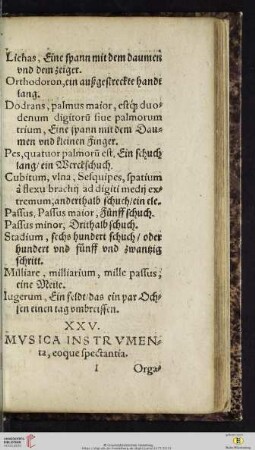 Lichas, Eine spann mit dem daumen
vnd dem zeiger.
Orthodoron, ein außgestreckte handt
lang.
Dodrans, palmus maior, estq́; duo-
denum digitorū siue palmorum
trium, Eine spann mit dem Dau-
men vnd kleinen finger.
Pes, quatuor palmorū est, Ein schuch
lang/ ein Werckschuch.
Cubitum, vlna, Sesquipes, spatium
à flexu brachij ad digiti medij ex-
tremum, anderthalb schuch/ ein ele.
Passus, Passus maior, Fünff schuch.
Passus minor, Drithalb schuch.
Stadium, sechs hundert schuch/ oder
hundert vnd fünff vnd zwantzig
schritt.
Milliare, milliarium, mille passus,
eine Meile.
Iugerum, Ein feldt/ das ein par Och-
sen einen tag vmbreissen.
XXV.
MVSICA INSTRVMEN-
ta, eoque spectantia.
I Orga-